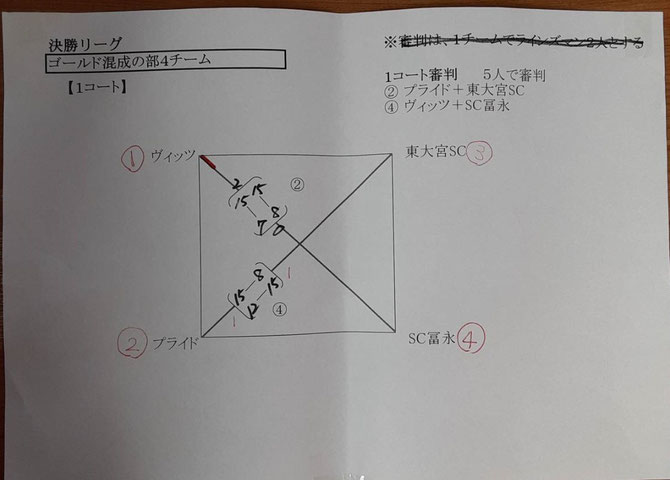 決勝リーグ
ゴールド混成の部4チーム
【1コート】
※審判は、1チームでラインズマン2人とする
1コート審判 5人で審判
② プライド+東大宮SC
④ ヴィッツ+SC冨永
① ヴィッツ
東大宮SC ③
2 ②
15 15
7 8 0
15 8 1
12 15
1 ④
② プライド
SC冨永 ④